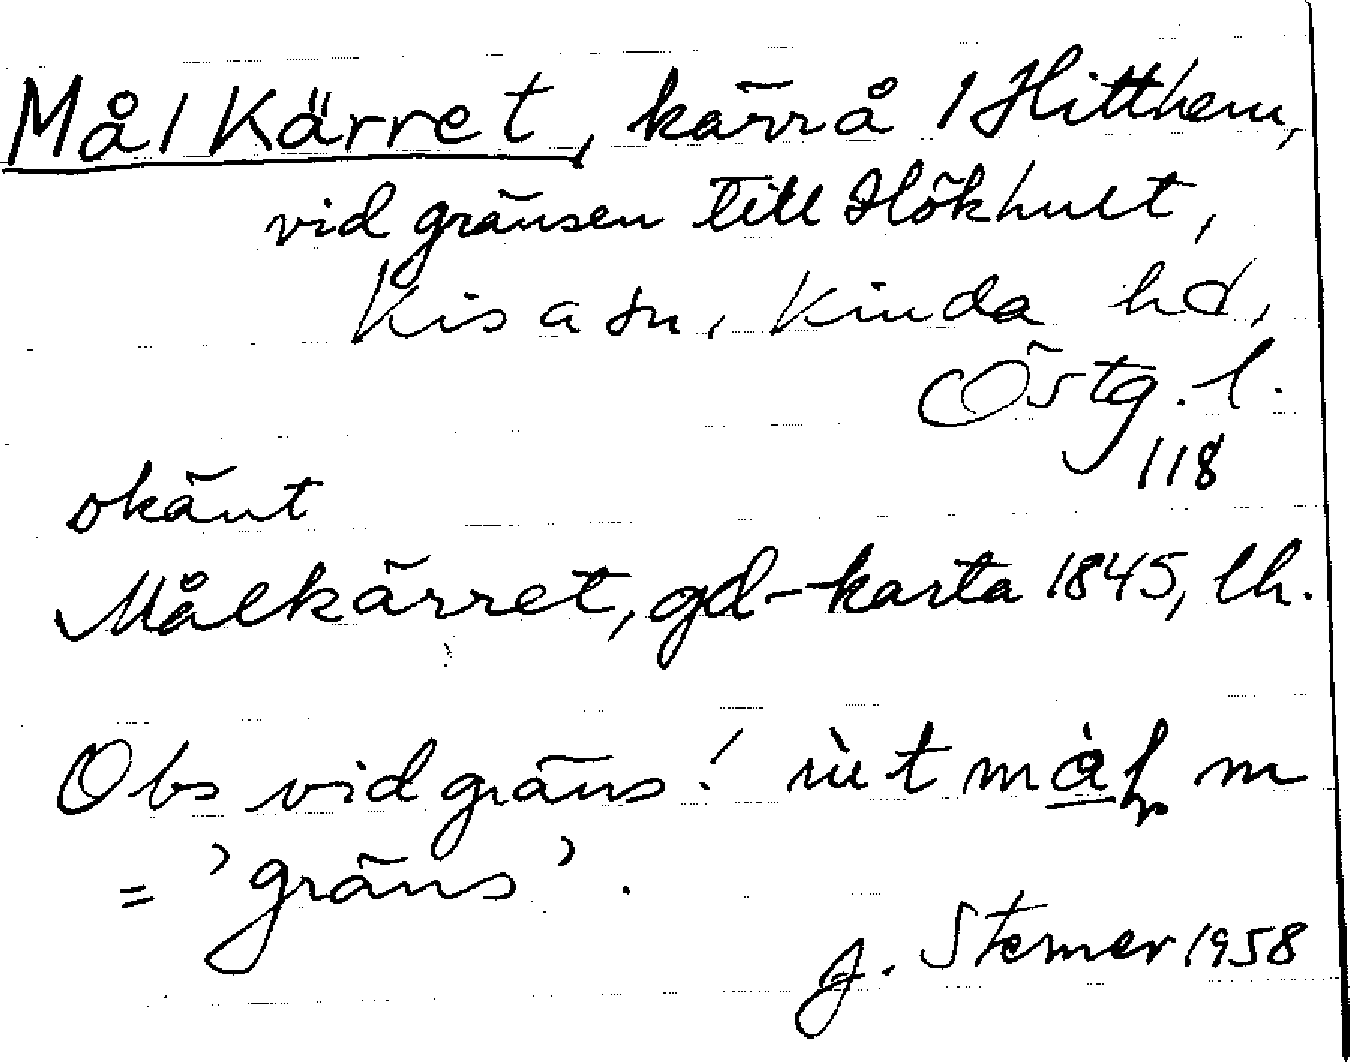 Målkärret, kärrå / Hitthem,
vid gränsen till Hökhult,
Kisa sn, Kinda hd,
Östg. l.
118
okänt
Målkärret, gd-karta 1845, lh.
Obs vid gräns! m
= 'gräns'.
J. Sterner 1958